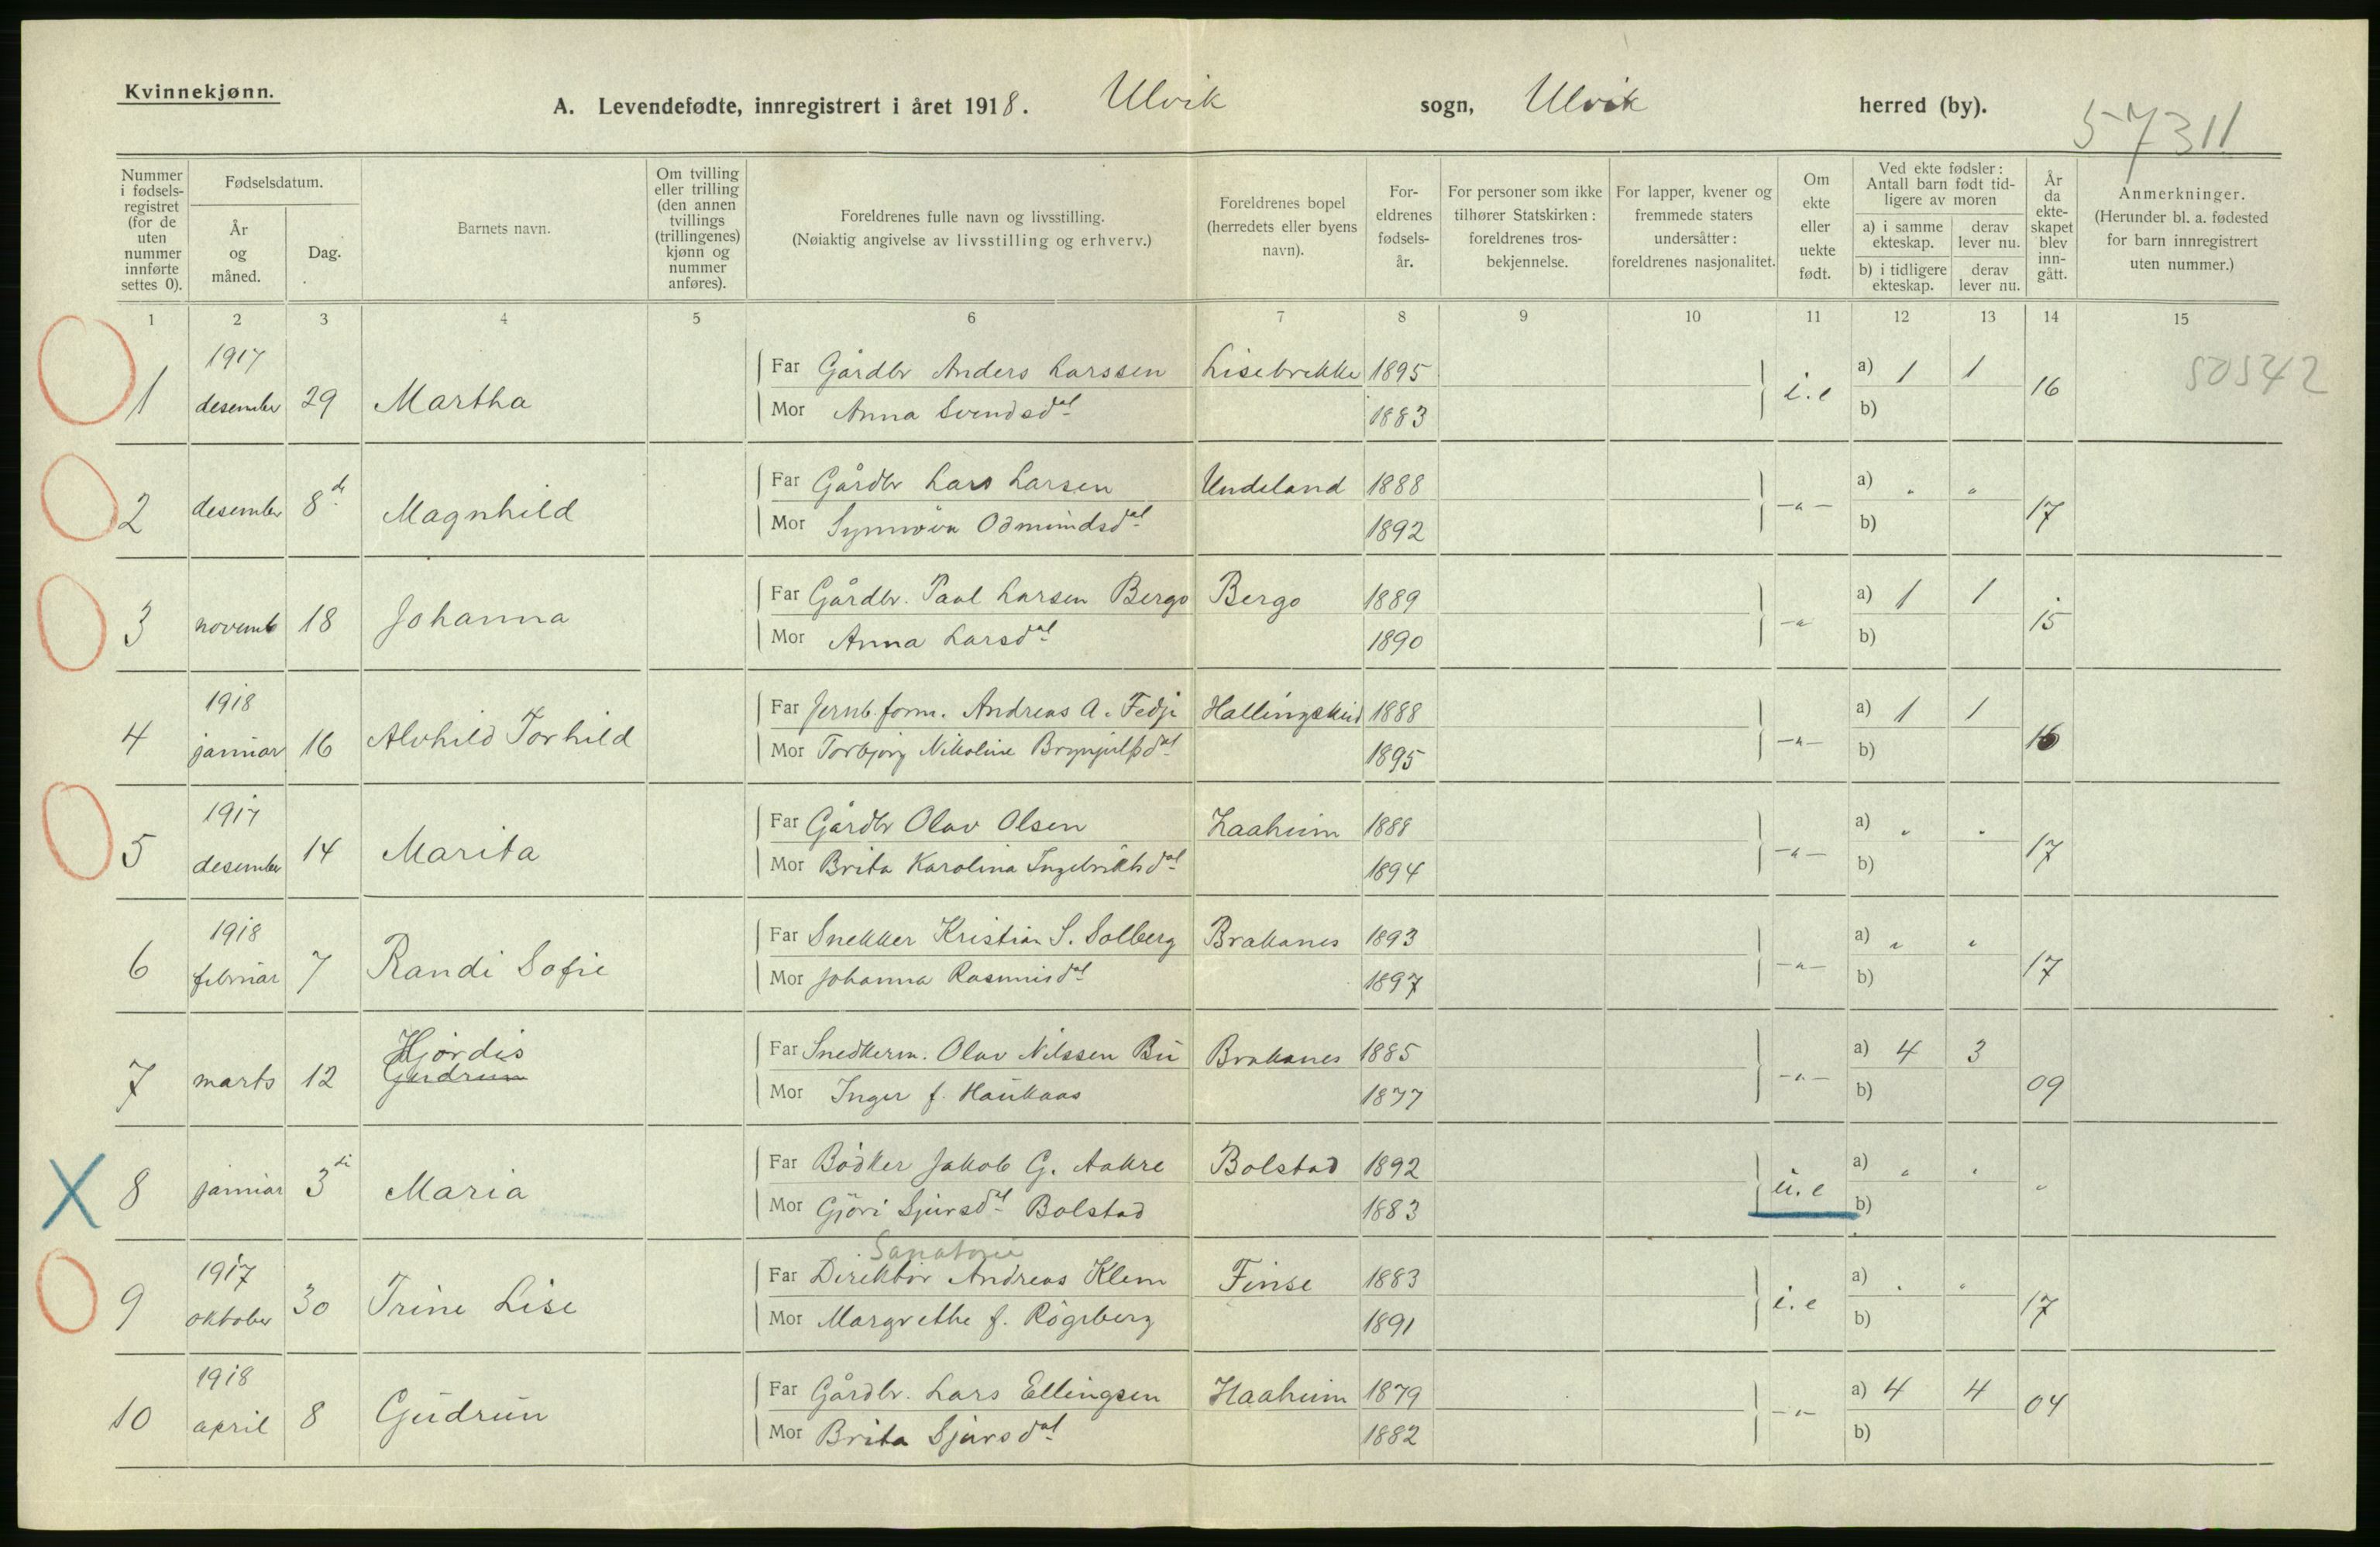 Kvinnekjønn.
A. Levendefødte, innregistrert i året 1918. Ulvik sogn, Ulvik herred (by).
57311
Nummer i fødselsregistret (for de uten nummer innførte settes 0).
Fødselsdatum.
År og måned.
Dag.
Barnets navn.
Om tvilling eller trilling (den annen tvillings (trillingenes) kjønn og nummer anføres).
Foreldrenes fulle navn og livsstilling.
(Nøiaktig angivelse av livsstilling og erhverv.)
Foreldrenes bopel (herredets eller byens navn).
Foreldrenes fødselsår.
For personer som ikke tilhører Statskirken: foreldrenes trosbekjennelse.
For lapper, kvener og fremmede staters undersåtter: foreldrenes nasjonalitet.
Om ekte eller uekte født.
Ved ekte fødsler: Antall barn født tidligere av moren
a) i samme ekteskap. derav lever nu.
b) i tidligere ekteskap. derav lever nu.
År da ekteskapet blev inngått.
Anmerkninger.
(Herunder bl. a. fødested for barn innregistrert uten nummer.)
1 2 3 4 5 6 7 8 9 10 11 12 13 14 15
1 1917 desember 29 Martha
Far Gårdbr Anders Larssen Lisebrekke 1895 i.e a) 1 1 16 50542
Mor Anna Svendsdat 1883 b)
2 desember 8de Magnhild
Far Gårdbr Lars Larsen Undeland 1888 -"- a) " " 17
Mor Synnöva Odmundsdat 1892 b)
3 novemb 18 Johanna
Far Gårdbr. Paal Larsen Bergo Bergo 1889 -" a) 1 1 15
Mor Anna Larsdat 1890 b)
4 1918 januar 16 Alvhild Torhild
Far Jernb.form. Andreas A. Fedje Hallingskeid 1888 -"- a) 1 1 16
Mor Torbjörg Nikoline Brynjulfsdat 1895 b)
5 1917 desember 14 Marita
Far Gårdbr Olav Olsen Haaheim 1888 -"- a) " " 17
Mor Brita Karolina Ingebriktsdat 1894 b)
6 1918 februar 7 Randi Sofie
Far Snekker Kristian S. Solberg Brakanes 1893 -"- a) " " 17
Mor Johanna Rasmusdat 1897 b)
7 marts 12 Hjördis Gudrun
Far Snedkerm. Olav Nilssen Bu Brakanes 1885 -"- a) 4 3 09
Mor Inger f. Haukaas 1877 b)
8 januar 3di Maria
Far Bödker Jakob G. Aakre Bolstad 1892 u.e a) " " "
Mor Gjöri Sjursdat Bolstad 1883 b)
Sanatorie
9 1917 oktober 30 Trine Lise
Far Direktör Andreas Klem Finse 1883 i.e a) " " 17
Mor Margrethe f. Rögeberg 1891 b)
10 1918 april 8 Gudrun
Far Gårdbr. Lars Ellingsen Haaheim 1879 -"- a) 4 4 04
Mor Brita Sjursdat 1882 b)